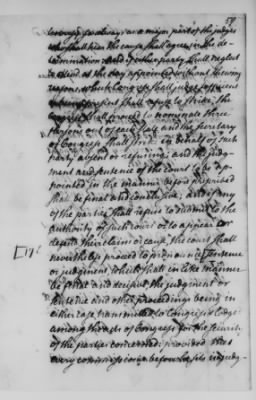 59
so always as a major part of the judges
who shall hear the cause shall agree in the de-
termination and if either party shall neglect
to attend at the day appointed without shewing
reasons, which Congress shall judge sufficient
or being present shall refuse to strike, the
Congress shall proceed to nominate three
persons out of each state and the Secretary
of Congress shall strike in behalf of such
party absent or refusing and the judg-
ment and sentence of the court to be ap-
pointed in the manner before prescribed
shall be final and conclusive, and if any
of the parties shall refuse to submit to the
authority of such court or to appear or
defend their claim or cause, the court shall
nevertheless proceed to pronounce sentence
or judgment, which shall in like manner
be final and decisive, the judgment or
sentence and other proceedings being in
either case transmitted to Congress & lodged
among the acts of Congress for the security
of the parties concerned: provided that
every commissioner before he sits in judg-